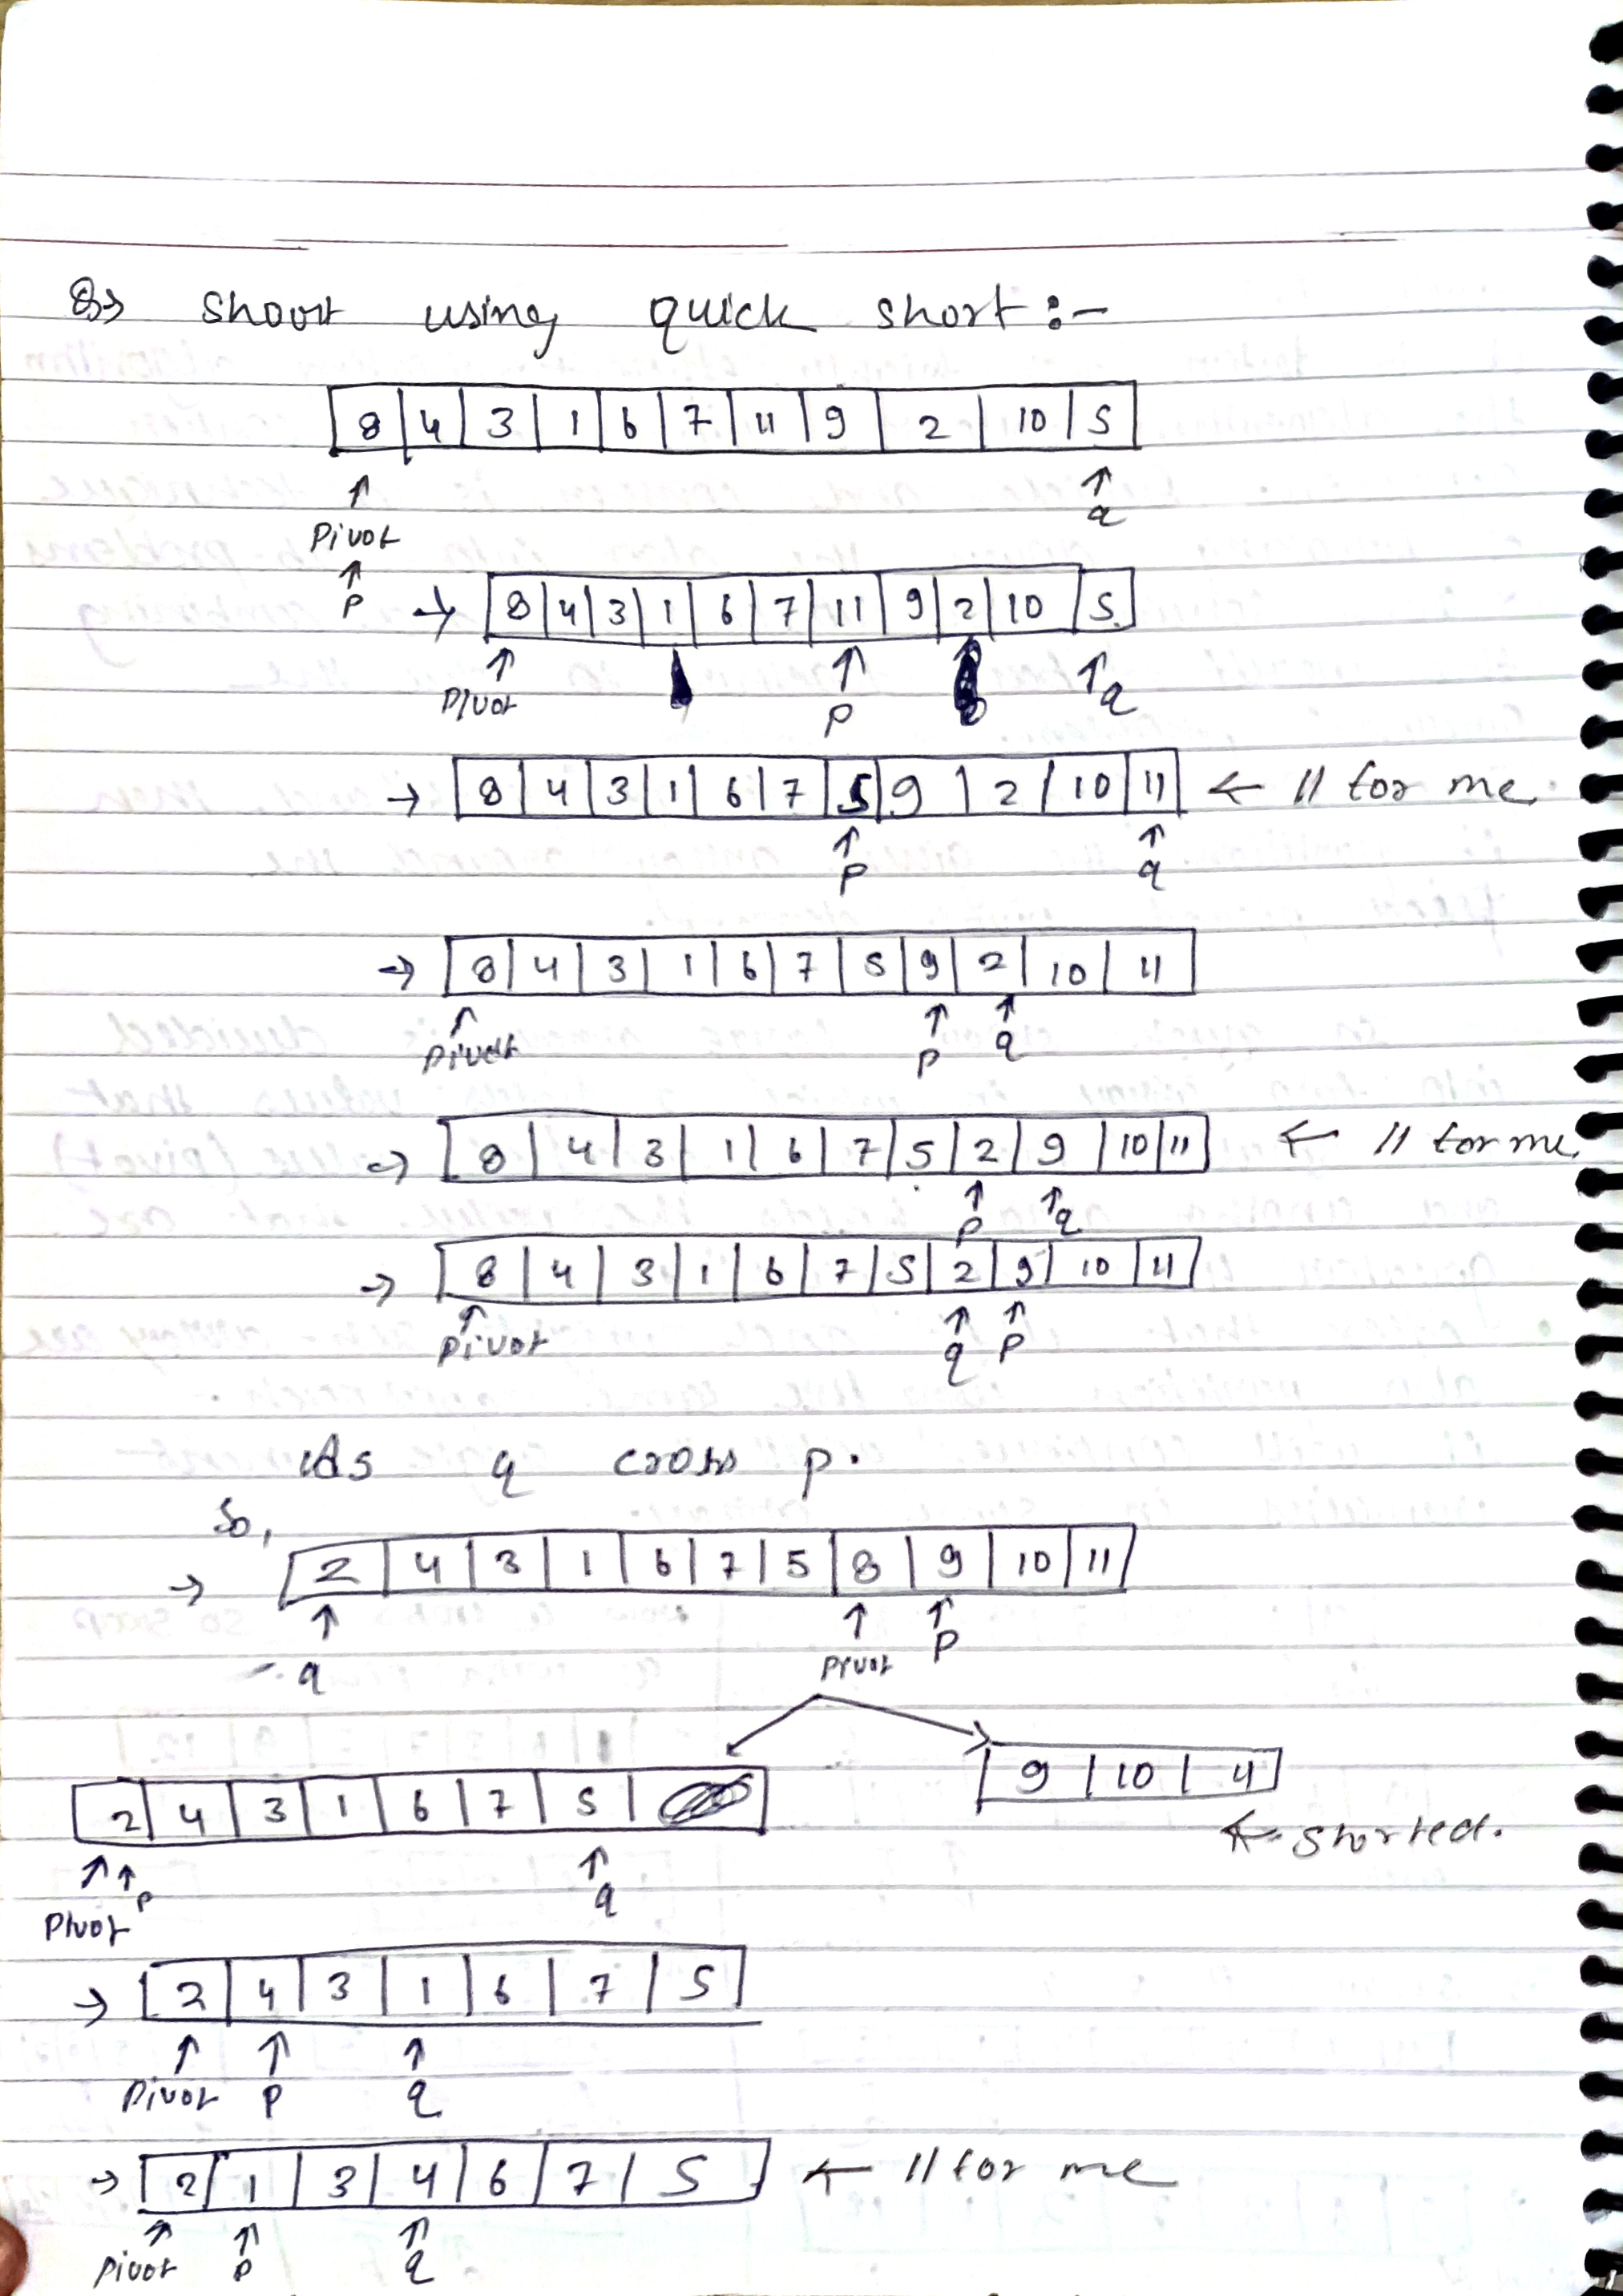 Q⇒ Shoort using quick short :-
8 | 4 | 3 | 1 | 6 | 7 | 11 | 9 | 2 | 10 | 5
↑ ↑
Pivot q
↑
P
→ 8 | 4 | 3 | 1 | 6 | 7 | 11 | 9 | 2 | 10 | 5
↑ ↑ ↑
Pivot P q
→ 8 | 4 | 3 | 1 | 6 | 7 | 5 | 9 | 2 | 10 | 11 ← // for me.
↑ ↑
P q
→ 8 | 4 | 3 | 1 | 6 | 7 | 5 | 9 | 2 | 10 | 11
↑ ↑ ↑
Pivot P q
→ 8 | 4 | 3 | 1 | 6 | 7 | 5 | 2 | 9 | 10 | 11 ← // for me.
↑ ↑
P q
→ 8 | 4 | 3 | 1 | 6 | 7 | 5 | 2 | 9 | 10 | 11
↑ ↑ ↑
Pivot q P
As q cross p.
So,
→ 2 | 4 | 3 | 1 | 6 | 7 | 5 | 8 | 9 | 10 | 11
↑ ↑ ↑
q Pivot P
2 | 4 | 3 | 1 | 6 | 7 | 5 9 | 10 | 11
← Shorted.
↑ ↑ ↑
Pivot P q
→ 2 | 4 | 3 | 1 | 6 | 7 | 5
↑ ↑ ↑
Pivot P q
→ 2 | 1 | 3 | 4 | 6 | 7 | 5 ← // for me
↑ ↑ ↑
Pivot P q